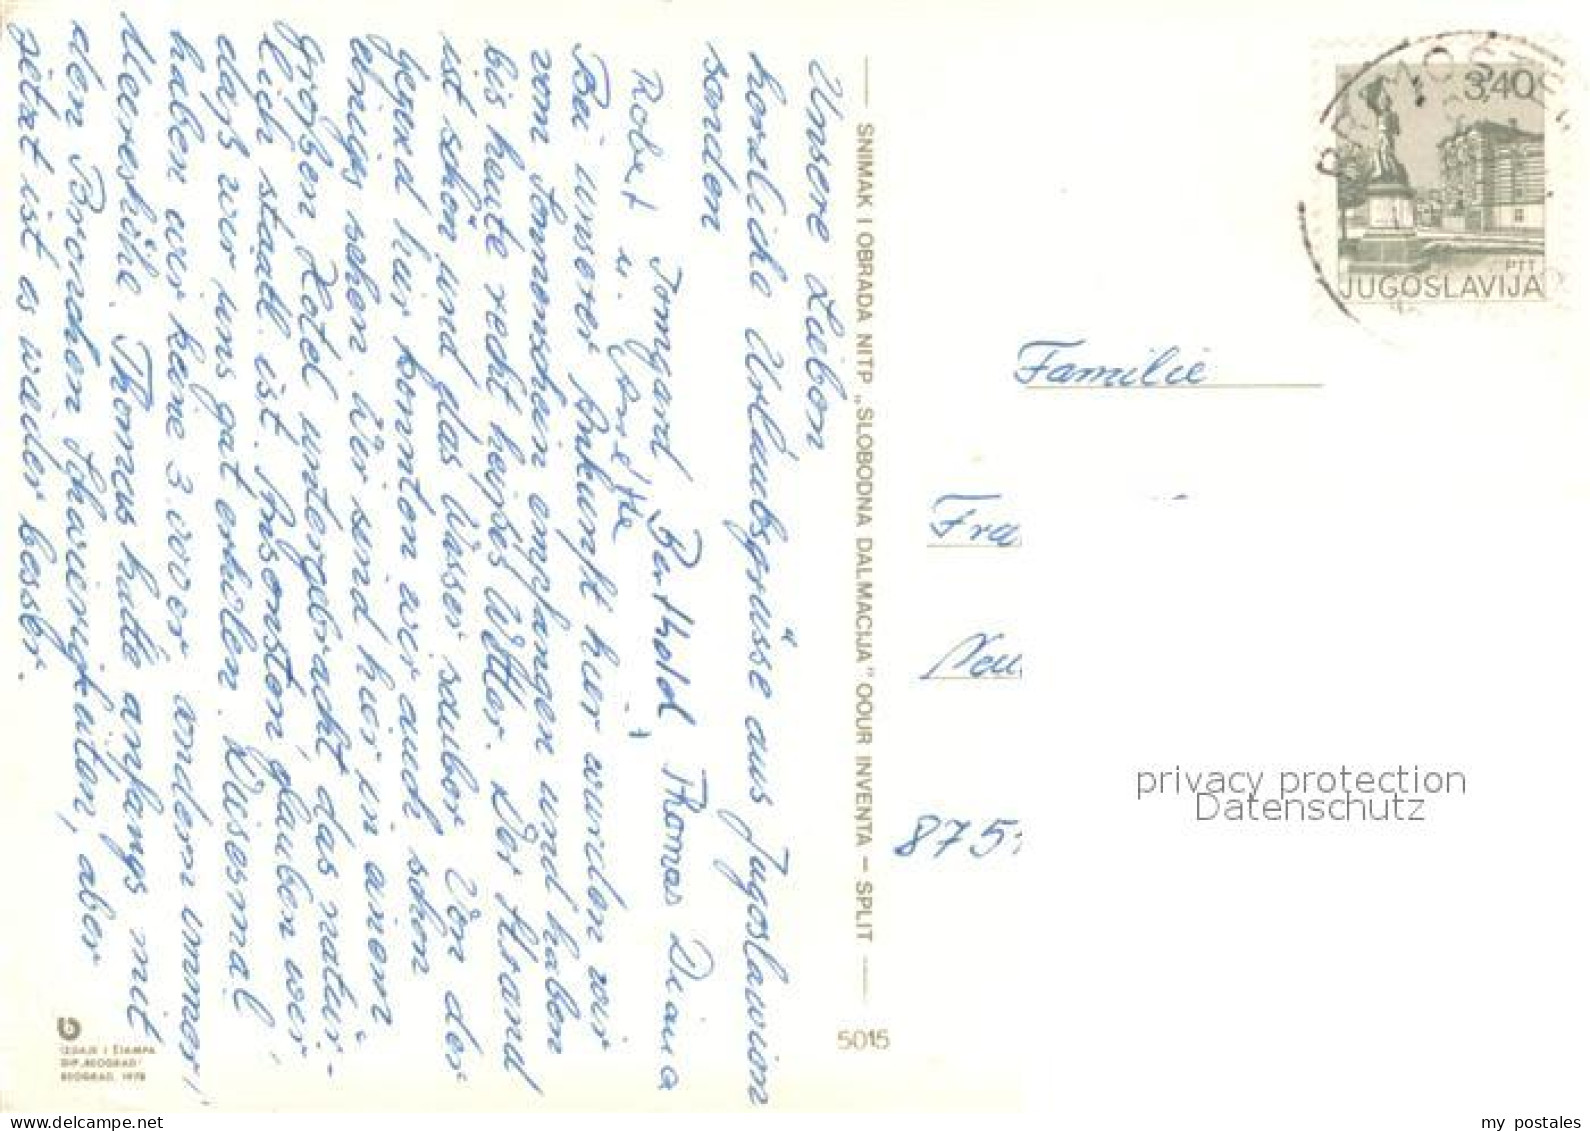 Unsere Lieben
herzliche Urlaubsgrüsse aus Jugoslawien
senden
Irmgard Berthold Thomas Diana
Robert u.
Bei unserer Ankunft hier wurden wir
vom Sonnenschein empfangen und haben
bis heute recht heißes Wetter. Der Strand
ist schön und das Wasser sauber. Von der
Gegend hier konnten wir auch schon
einiges sehen. Wir sind hier in einem
großen Hotel untergebracht das natür-
lich staatl. ist. Ansonsten glauben wir
daß wir uns gut erholen. Diesmal
haben wir keine 3 weer andern immer!
Meereshöhe. Thomas hatte anfangs mit
den Bronchen Schwierigkeiten, aber
jetzt ist es wieder besser.
SNIMAK I OBRADA NITP „SLOBODNA DALMACIJA" OOUR INVENTA – SPLIT
5015
IZDAJE I ŠTAMPA
BIP „BEOGRAD"
BEOGRAD, 1978
PRIMOŠTEN
3,40
PTT
JUGOSLAVIJA
Familie
Fra
Neu
875
privacy protection
Datenschutz
my postales